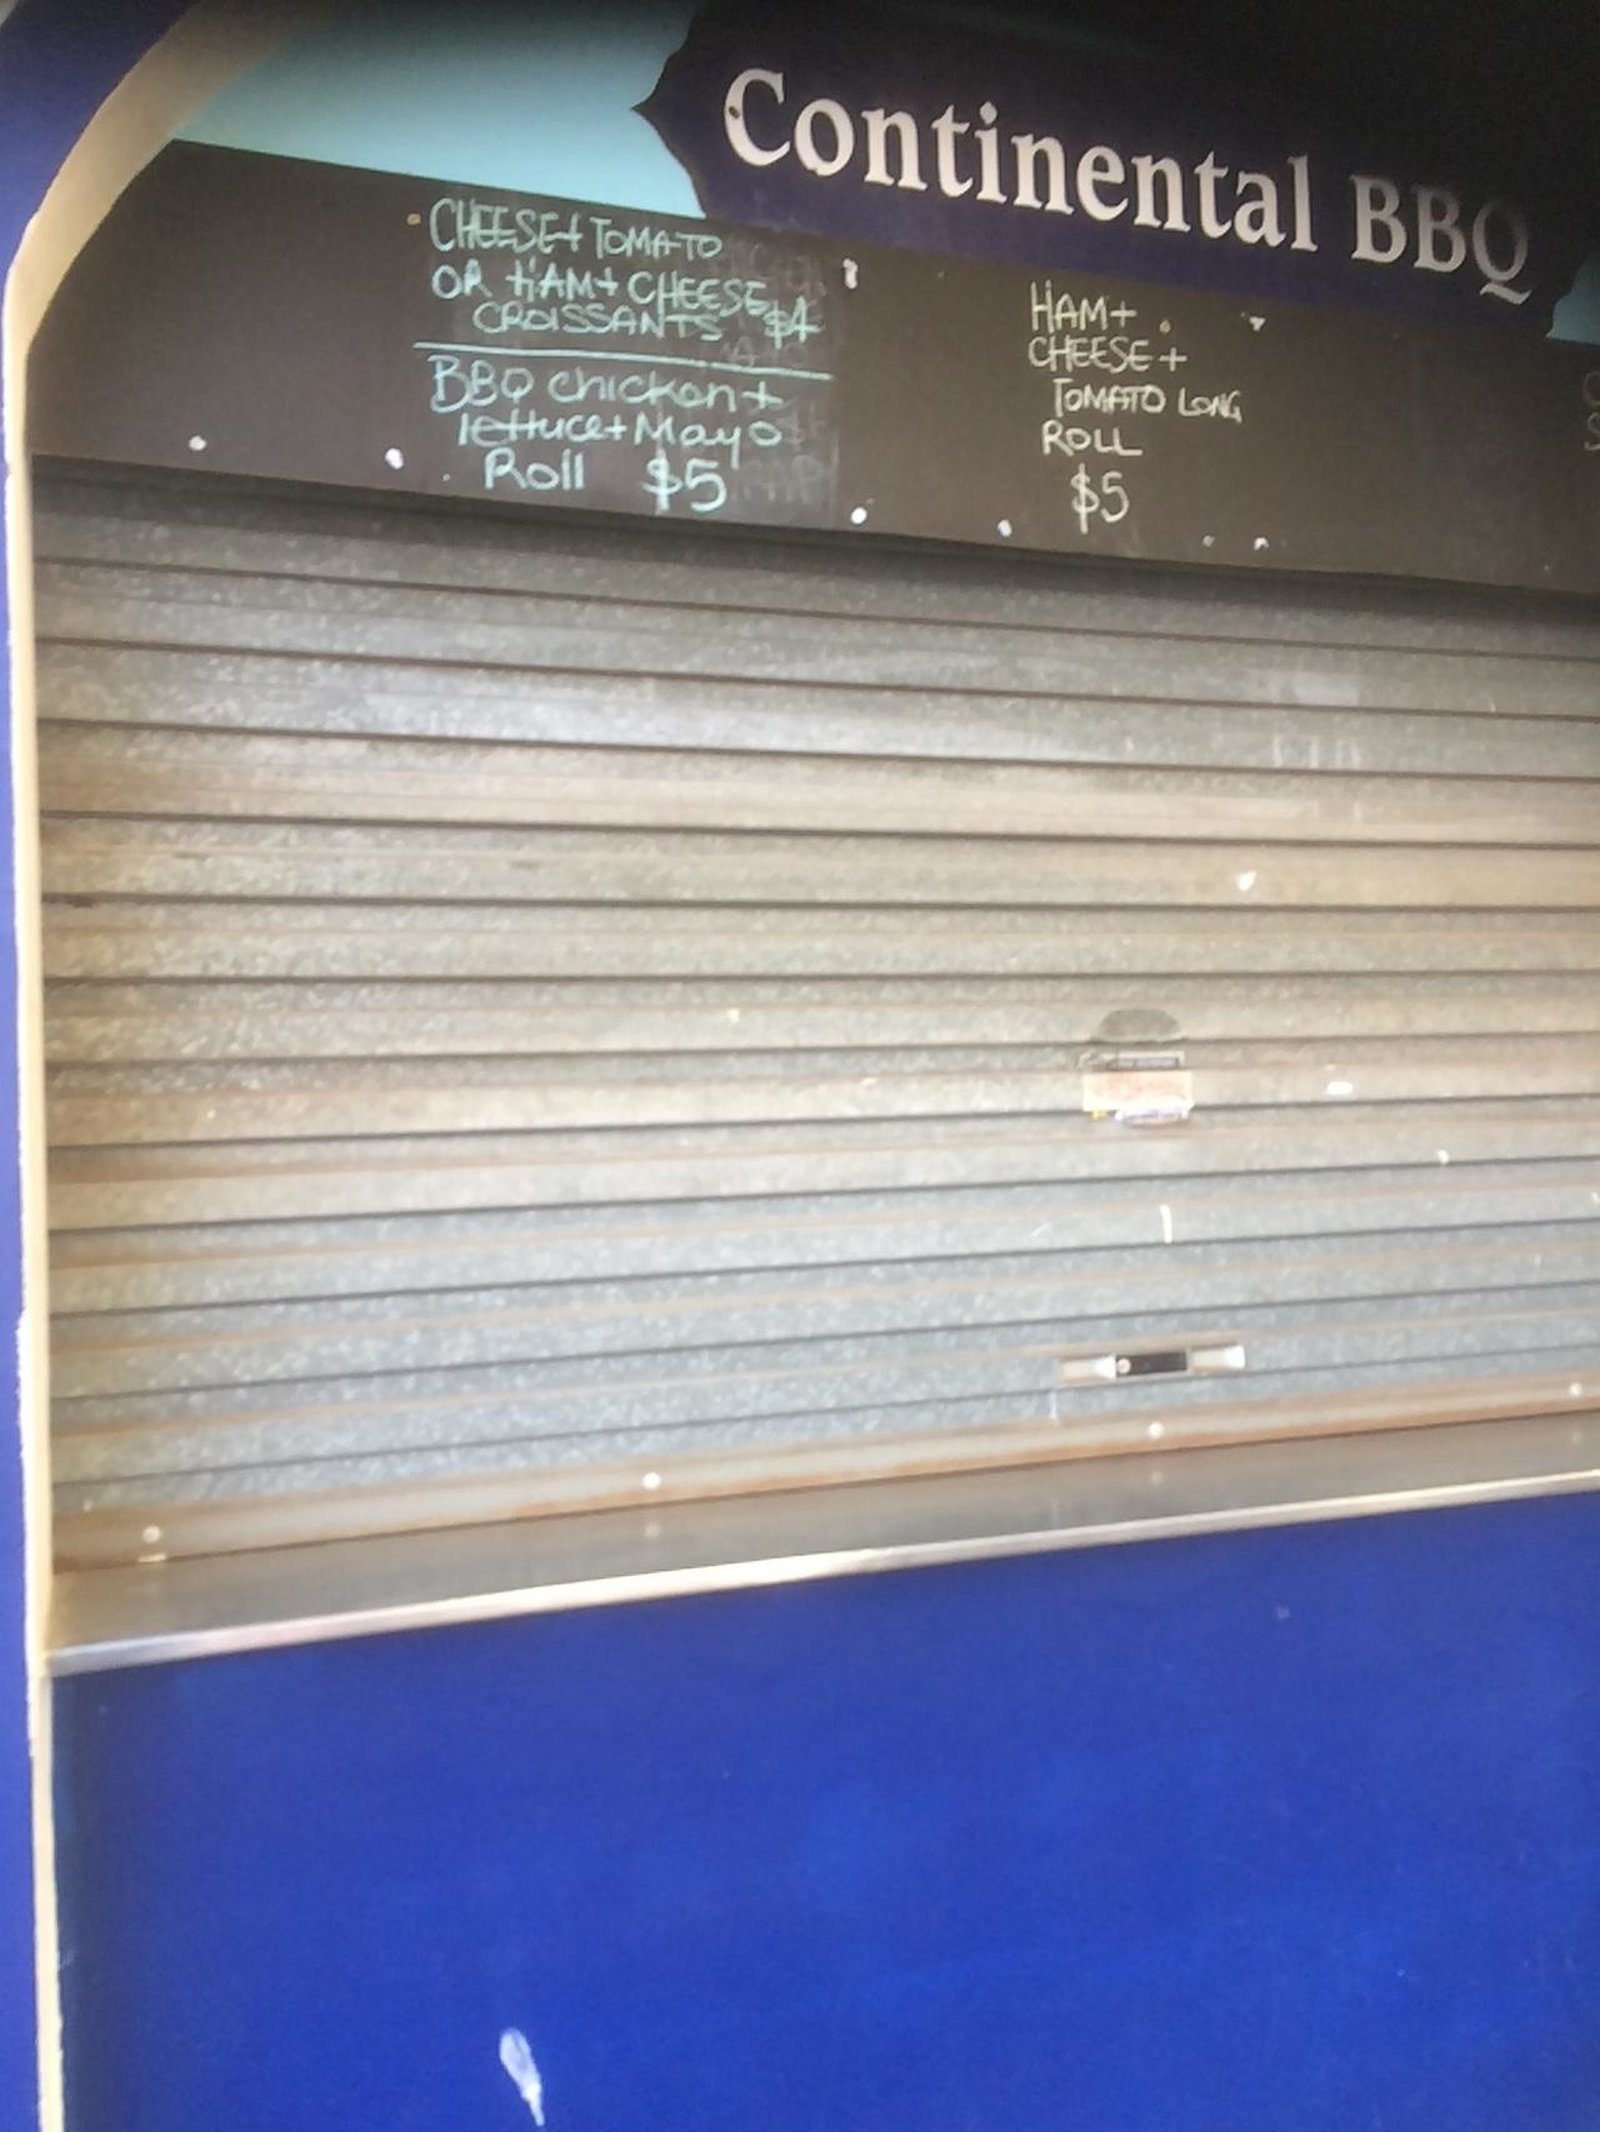 Continental BBQ
CHEESE+ TOMATO
OR HAM+ CHEESE
CROISSANTS $4
BBQ chicken +
lettuce+Mayo
Roll $5
HAM+
CHEESE +
TOMATO LONG
ROLL
$5